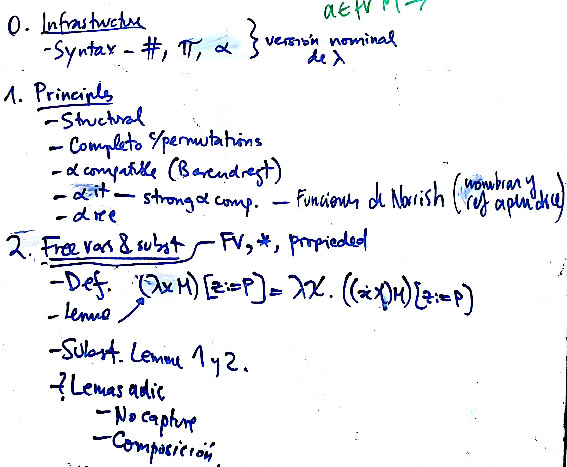 a∈fv M →
0. Infrastructure
- Syntax - #, π, α } versión nominal
de λ
1. Principles
- Structural
- Completo c/permutations
- α compatible (Barendregt)
- α it — strong α comp. — Funciones de Norrish (nombrar y
ref apéndice)
- α rec
2. Free vars & subst — FV, *, propiedad
- Def. (λxM)[z:=P] = λχ. ((x χ)M)[z:=P]
- Lemma
- Subst. Lemma 1 y 2.
- Lemas adic
- No capture
- Composición